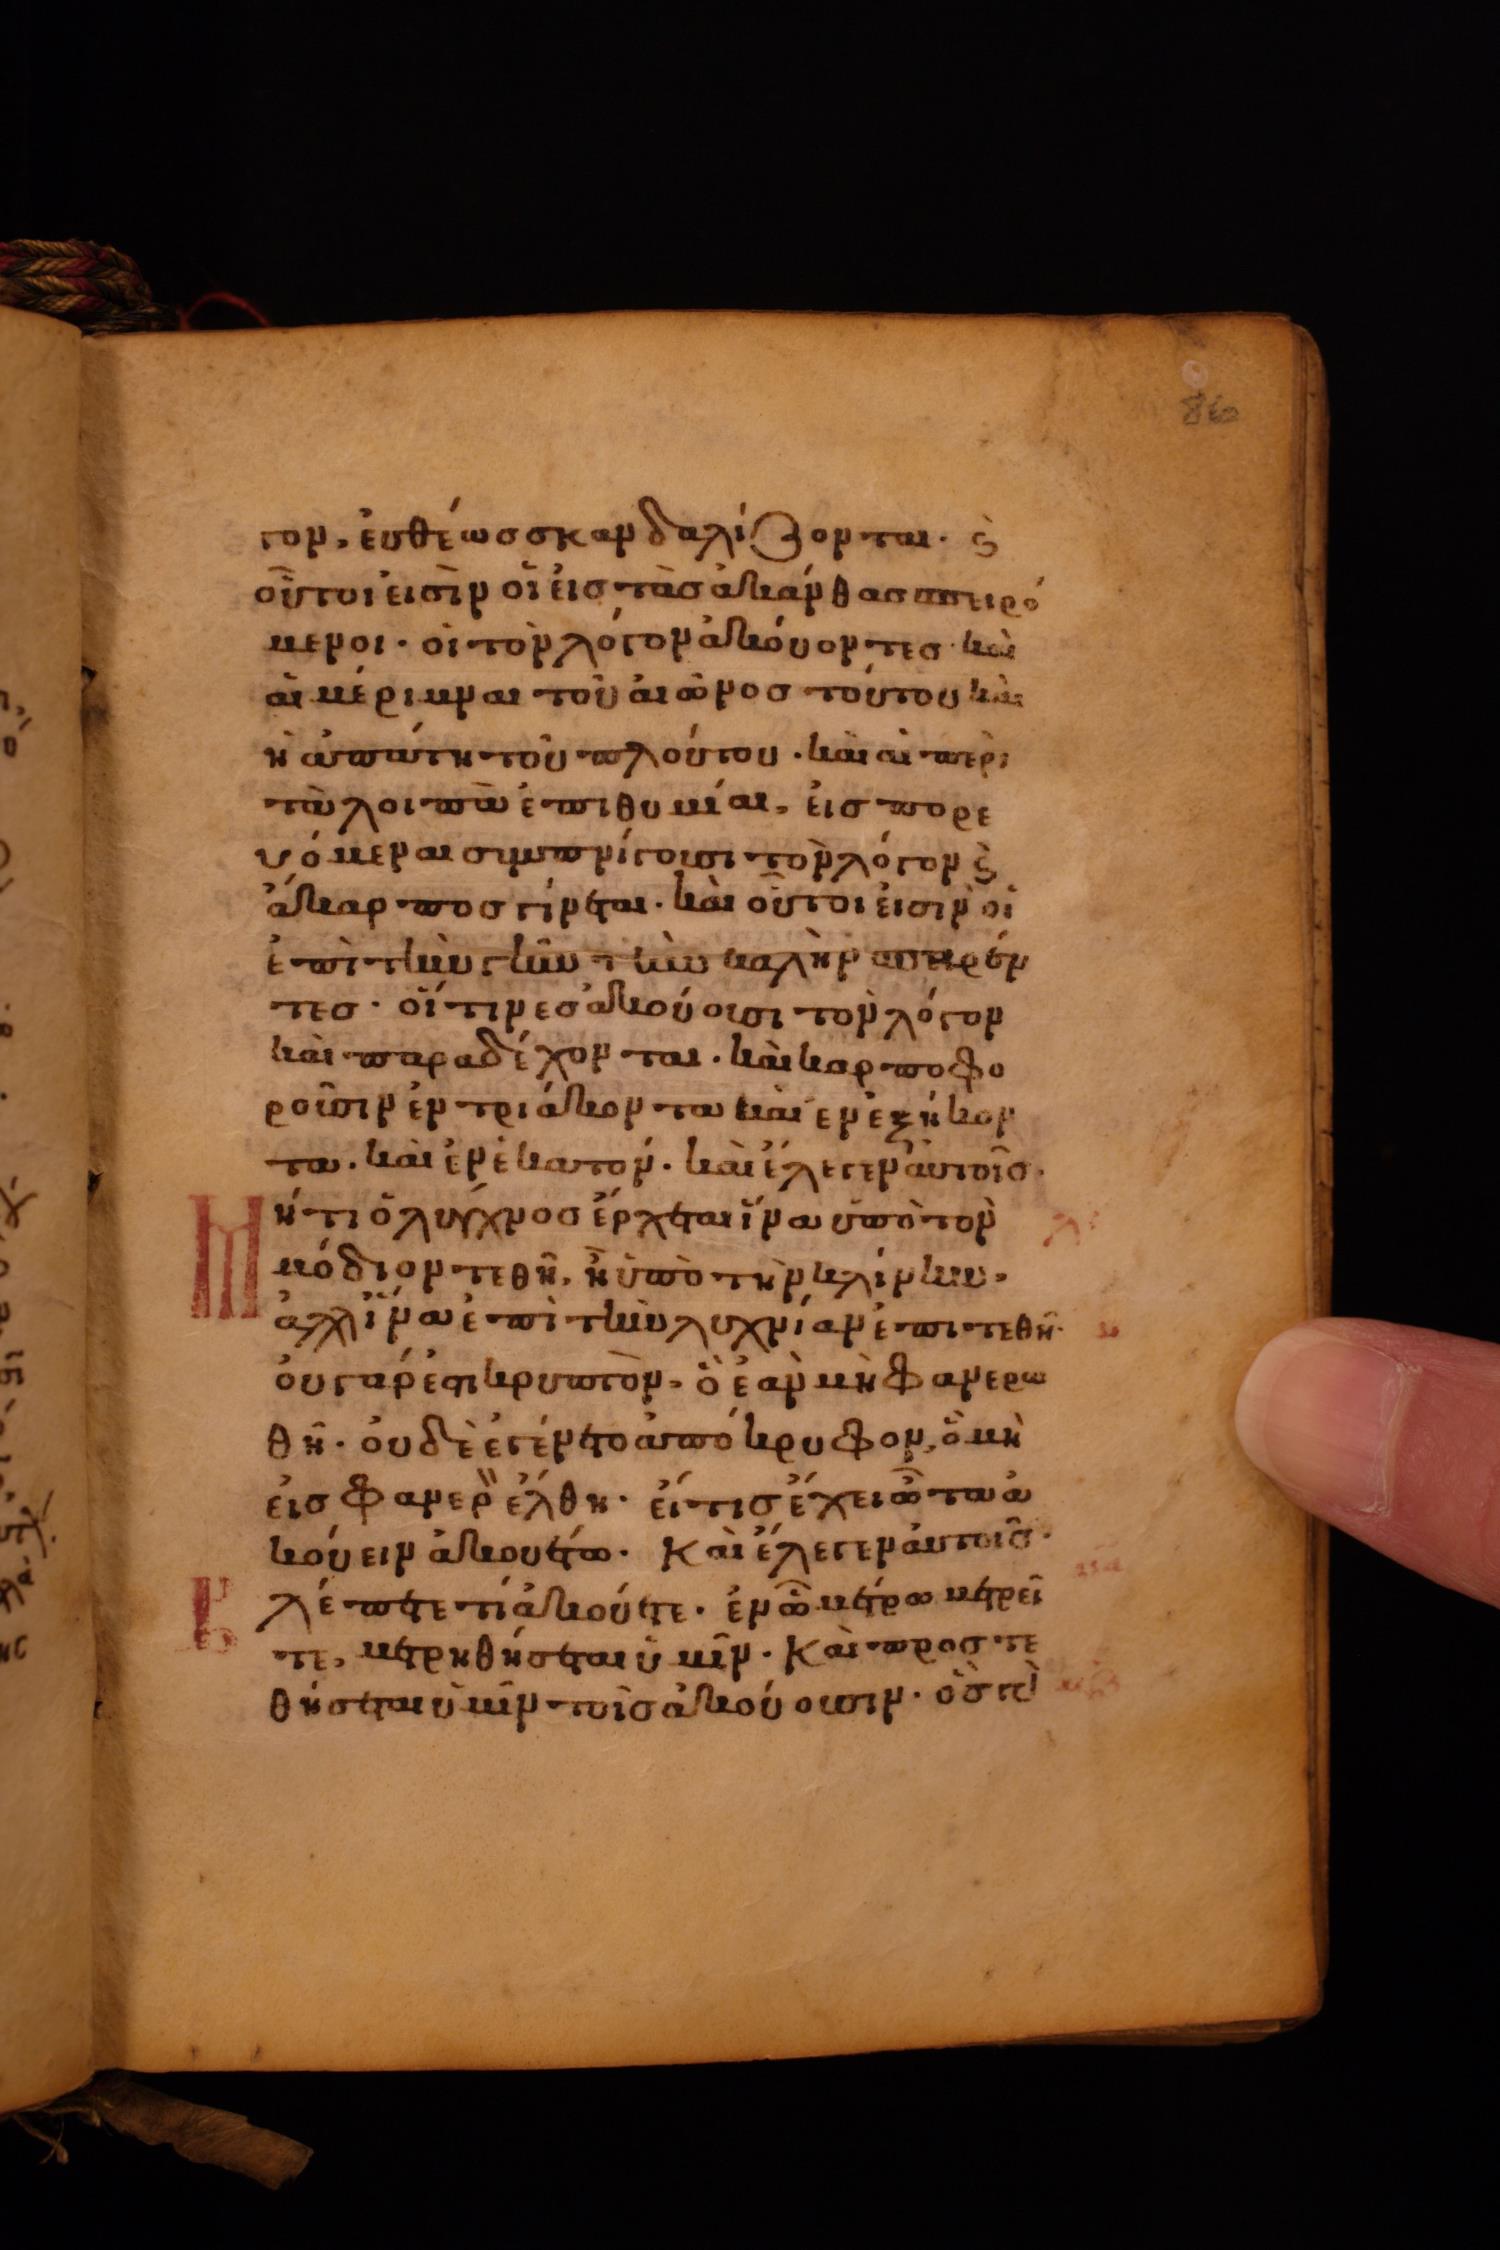 86
γον, ἐυθέως σκανδαλίζονται. ϗ
οὗτοι ἐισὶν οἱ ἐις τὰς ἀκάνθας σπειρό
μενοι· οἱ τὸν λόγον ἀκόυοντες· καὶ
αἱ μέριμναι τοῦ ἀιῶνος τούτου καὶ
ἡ ἀπάτη τοῦ πλούτου· καὶ αἱ περὶ
τὰ λοιπὰ ἐπιθυμίαι, ἐισπορε
υόμεναι συμπνίγουσι τὸν λόγον ϗ
ἄκαρπος γίνεται· καὶ οὗτοι ἐισὶν οἱ
ἐπὶ τὴν γῆν τὴν καλὴν σπαρέν
τες· οἵτινες ἀκούουσι τὸν λόγον
καὶ παραδέχονται· καὶ καρποφο
ροῦσιν ἐν τριάκοντα καὶ ἐν ἑξήκον
τα· καὶ ἐν ἑκατον· καὶ ἔλεγεν ἀυτοῖς·
Μήτι ὁ λύχνος ἔρχεται ἵνα ὑπὸ τὸν
μόδιον τεθῆ, ἢ ὑπὸ τὴν κλίνην,
ἀλλ ἵνα ἐπὶ τὴν λυχνίαν ἐπιτεθῆ·
ὀυ γάρ ἐστι κρυπτὸν, ὃ ἐὰν μὴ φανερω
θῆ· ὀυδὲ ἐγένετο ἀπόκρυφον, ὃ μὴ
ἐις φανερὸν ἔλθη· ἔι τις ἔχει ὦτα ἀ
κούειν ἀκουέτω· Καὶ ἔλεγεν ἀυτοῖς·
Βλέπετε τί ἀκούετε· ἐν ὧ μέτρω μετρεῖ
τε, μετρηθήσεται ὑμῖν· Καὶ προστε
θήσεται ὑμῖν τοῖς ἀκούουσιν· ὃς γὰρ